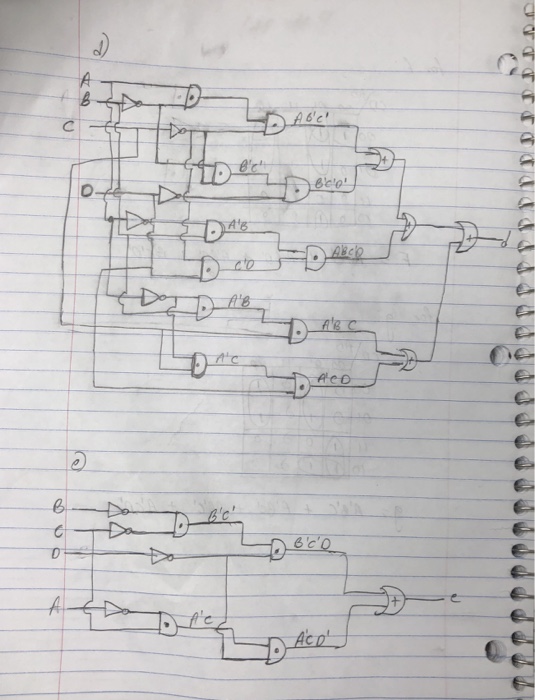 d)
A
B
AB'C'
C
B'C'
B'C'D'
D
d
A'B
A'BC'D
C'D
A'B
A'BC
A'C
A'CD
e)
B
B'C'
C
B'C'D
D
e
A
A'C
A'CD'